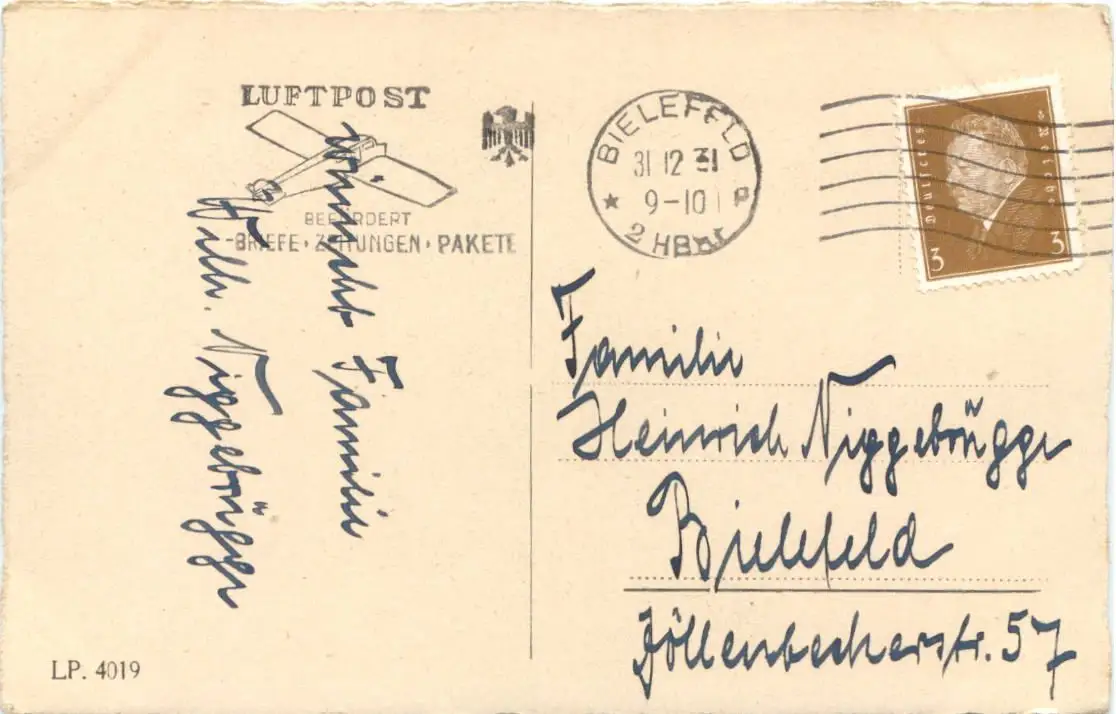 LUFTPOST
BEFÖRDERT
-BRIEFE·ZEITUNGEN·PAKETE
BIELEFELD
31 12 31
9-10
2 HBhf
Deutsches Reich
3 3
wünscht Familie
Wilh. Niggebrügge
Familie
Heinrich Niggebrügge
Bielefeld
Jöllenbeckerstr. 57
LP. 4019